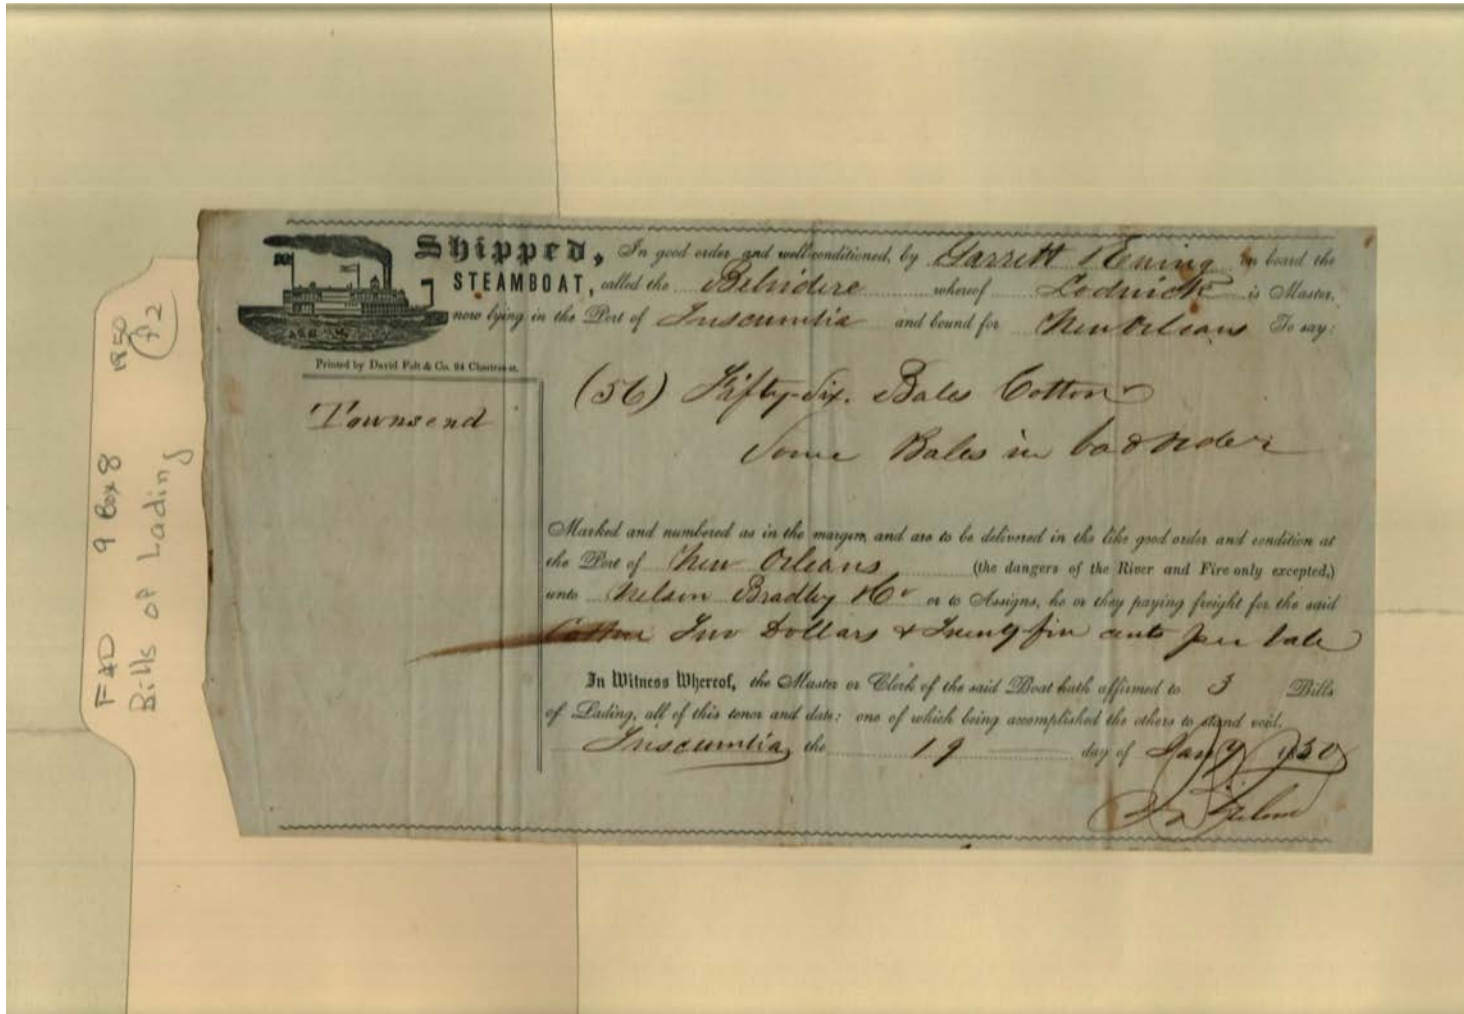 Shipped, In good order and well conditioned, by Garrett & Ewing on board the
STEAMBOAT, called the Belvidere whereof Lodwick is Master,
now lying in the Port of Tuscumbia and bound for New Orleans To say:
Printed by David Felt & Co. 24 Chartres-st.
Townsend
(56) Fifty-Six. Bales Cotton
Some Bales in bad order
Marked and numbered as in the margin, and are to be delivered in the like good order and condition at
the Port of New Orleans (the dangers of the River and Fire only excepted,)
unto Nelson Bradley & Co or to Assigns, he or they paying freight for the said
Cotton Two Dollars & Twenty five cents per bale
In Witness Whereof, the Master or Clerk of the said Boat hath affirmed to 3 Bills
of Lading, all of this tenor and date; one of which being accomplished the others to stand void.
Tuscumbia, the 19 day of Jany 1850
F&D 9 Box 8 1850
Bills of Lading f2